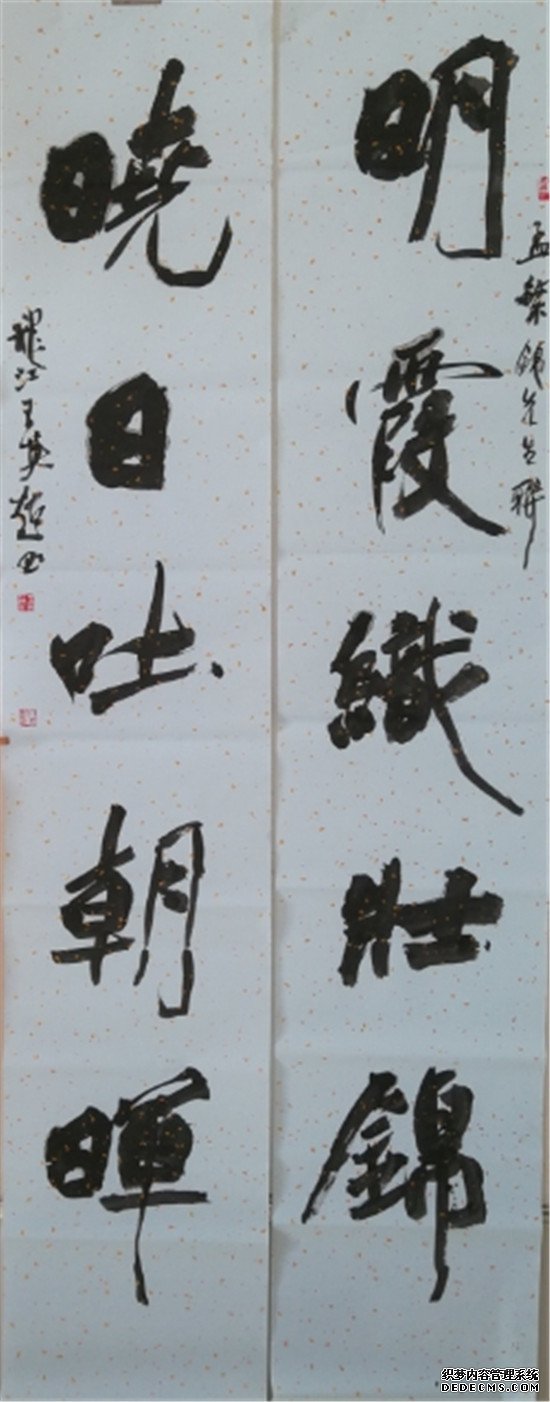 明霞織壯錦
孟繁錦先生聯
曉日吐朝暉
龍江王英超書
织梦内容管理系统
DEDECMS.COM